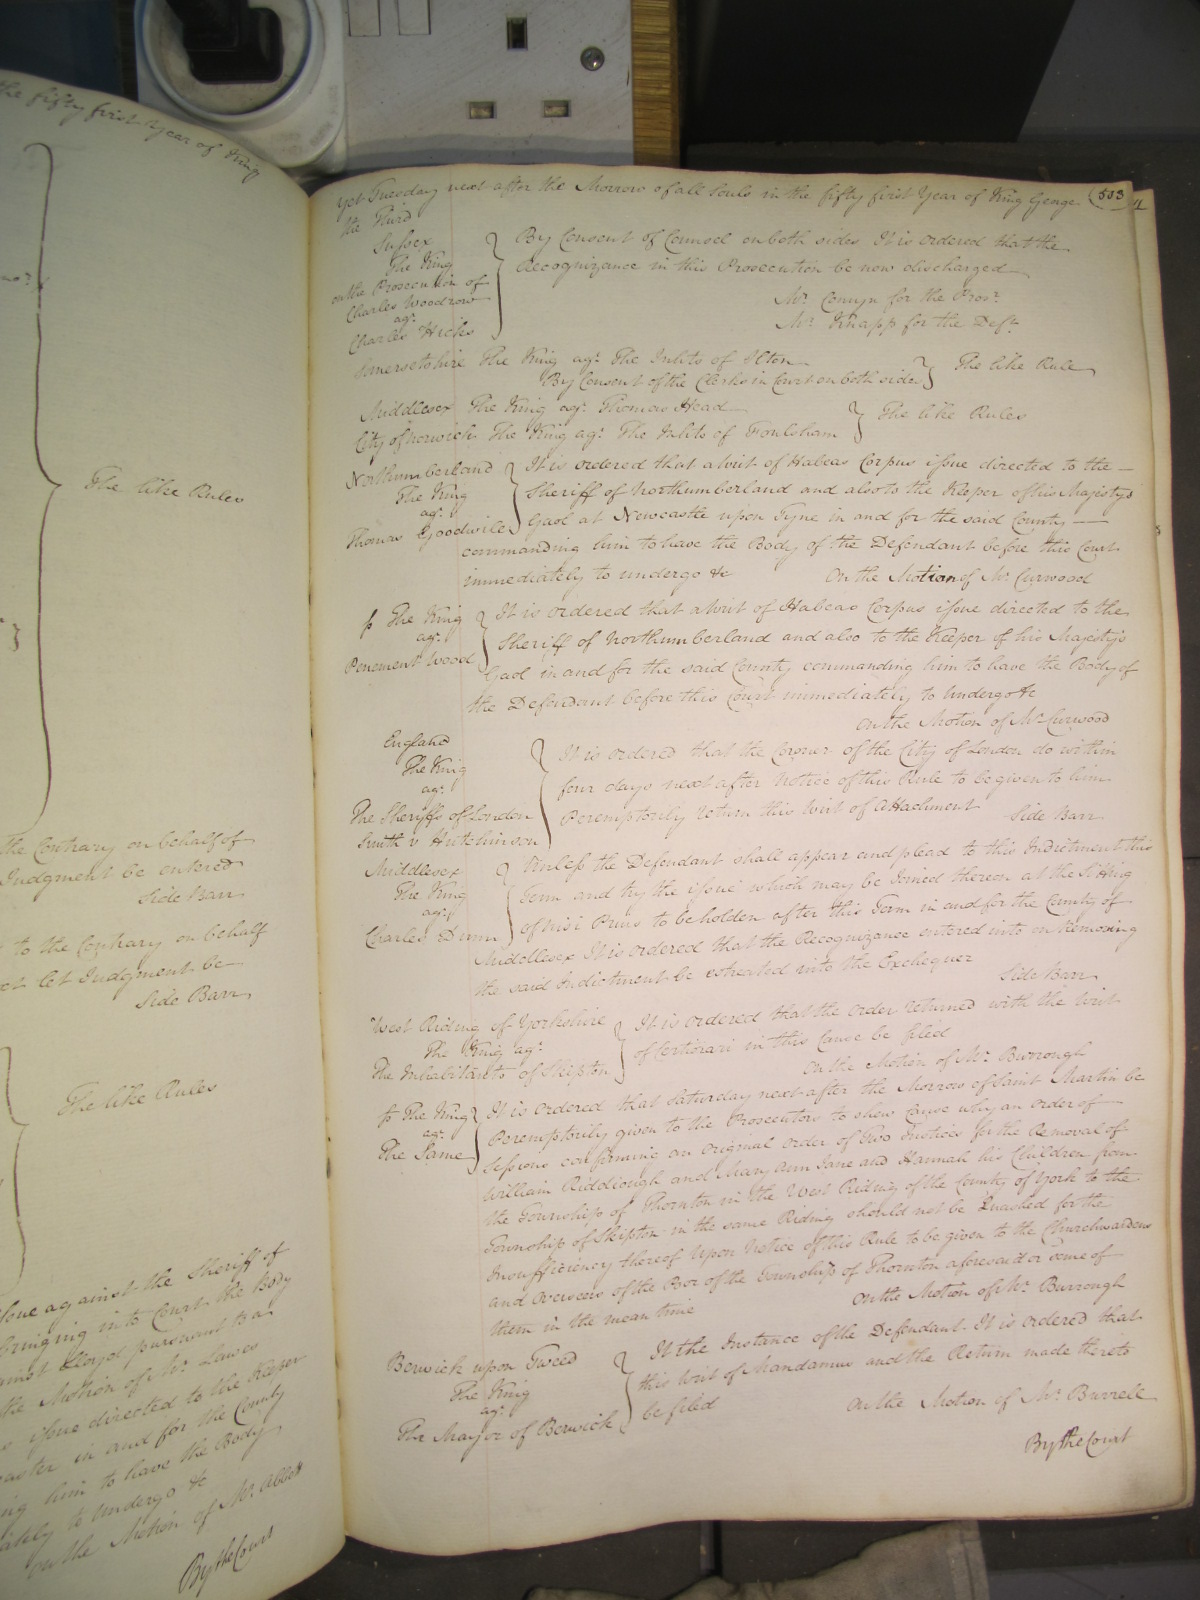 the fifty first Year of King
The like Rules
the Contrary on behalf of
Judgment be entered
Side Barr
to the Contrary on behalf
let Judgment be
Side Barr
The like Rules
against the Sheriff of
bringing into Court the Body
Lloyd pursuant to a
the Motion of Mr. Lawes
issue directed to the Keeper
in and for the County
him to have the Body
to undergo &c
on the Motion of Mr. Abbott
By the Court
yet Tuesday next after the Morrow of all Souls in the fifty first Year of King George 503
the Third
Sussex
The King
on the Prosecution of
Charles Woodrow
agt.
Charles Hicks
By Consent of Counsel on both sides It is ordered that the
Recognizance in this Prosecution be now discharged
Mr. Comyn for the Pror.
Mr. Knapp for the Deft.
Somersetshire The King agt. The Inhts of Ilton
By Consent of the Clerks in Court on both sides
The like Rule
Middlesex The King agt. Thomas Head
City of Norwich The King agt. The Inhts of Foulsham
The like Rules
Northumberland
The King
agt.
Thomas Goodwile
It is ordered that a Writ of Habeas Corpus issue directed to the
Sheriff of Northumberland and also to the Keeper of his Majestys
Gaol at Newcastle upon Tyne in and for the said County
commanding him to have the Body of the Defendant before this Court
immediately to undergo &c On the Motion of Mr. Curwood
The King
agt.
Penement Wood
It is ordered that a Writ of Habeas Corpus issue directed to the
Sheriff of Northumberland and also to the Keeper of his Majestys
Gaol in and for the said County commanding him to have the Body of
the Defendant before this Court immediately to undergo &c
On the Motion of Mr. Curwood
England
The King
agt.
The Sheriffs of London
Smith v Hutchinson
It is ordered that the Coroner of the City of London do within
four days next after Notice of this Rule to be given to him
Peremptorily return this Writ of Attachment
Side Barr
Middlesex
The King
agt.
Charles Dunn
Unless the Defendant shall appear and plead to this Indictment this
Term and try the issue which may be Joined thereon at the Sitting
of Nisi Prius to be holden after this Term in and for the County of
Middlesex It is ordered that the Recognizance entered into on Removing
the said Indictment be estreated into the Exchequer
Side Barr
West Riding of Yorkshire
The King agt.
The Inhabitants of Skipton
It is ordered that the order returned with the Writ
of Certiorari in this Cause be filed
On the Motion of Mr. Burrough
The King
agt.
The Same
It is ordered that Saturday next after the Morrow of Saint Martin be
Peremptorily given to the Prosecutors to shew Cause why an order of
Sessions confirming an original order of Two Justices for the Removal of
William Riddiough and Mary Ann Jane and Hannah his Children from
the Township of Thornton in the West Riding of the County of York to the
Township of Skipton in the same Riding should not be Quashed for the
Insufficiency thereof Upon Notice of this Rule to be given to the Churchwardens
and Overseers of the Poor of the Township of Thornton aforesaid or some of
them in the mean time On the Motion of Mr. Burrough
Berwick upon Tweed
The King
agt.
The Mayor of Berwick
At the Instance of the Defendant It is ordered that
this Writ of Mandamus and the Return made thereto
be filed On the Motion of Mr. Burrell
By the Court